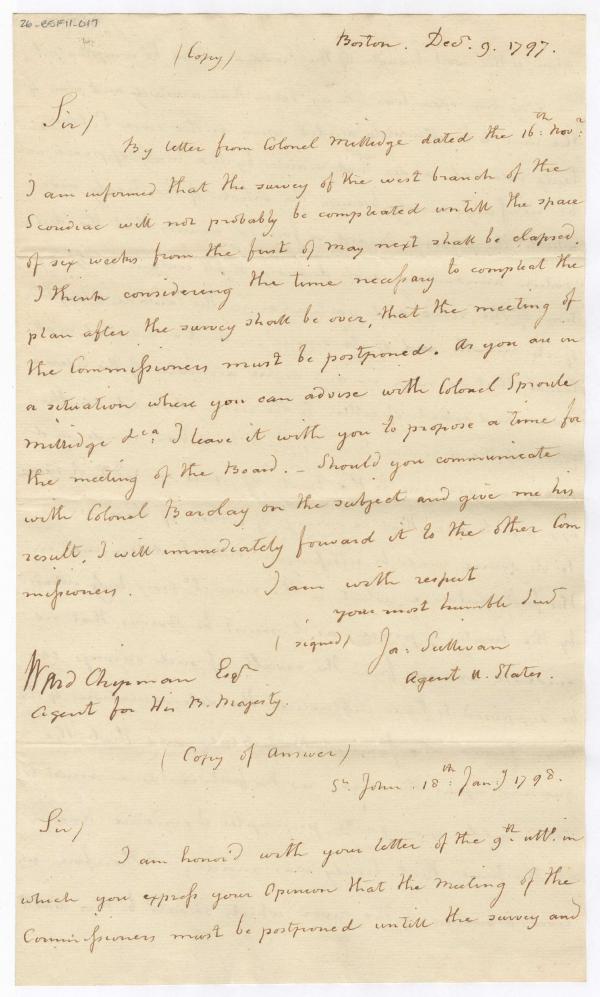 26-BSF11-017
Boston. Decr. 9. 1797.
(Copy)
Sir/
By letter from Colonel Millidge dated the 16th: Novr:
I am informed that the survey of the west branch of the
Scoudiac will not probably be compleated untill the space
of six weeks from the first of May next shall be elapsed.
I think considering the time necessary to compleat the
plan after the survey shall be over, that the meeting of
the Commissioners must be postponed. As you are in
a situation where you can advise with Colonel Sproule
Millidge &ca: I leave it with you to propose a time for
the meeting of the Board. – Should you communicate
with Colonel Barclay on the subject and give me his
result, I will immediately forward it to the other Com
missioners.
I am with respect
your most humble Servt
(signed) Ja: Sullivan
Agent U. States.
Ward Chipman Esqr
Agent for His B. Majesty.
(Copy of Answer)
St. John. 18th: Jany: 1798.
Sir/
I am honor'd with your letter of the 9th. ulto. in
which you express your Opinion that the meeting of the
Commissioners must be postponed untill the survey and